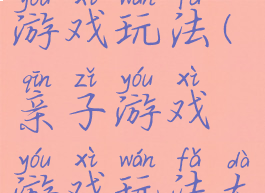 yóu xì wán fǎ
游戏玩法(
qīn zǐ yóu xì
亲子游戏
yóu xì wán fǎ dà
游戏玩法大